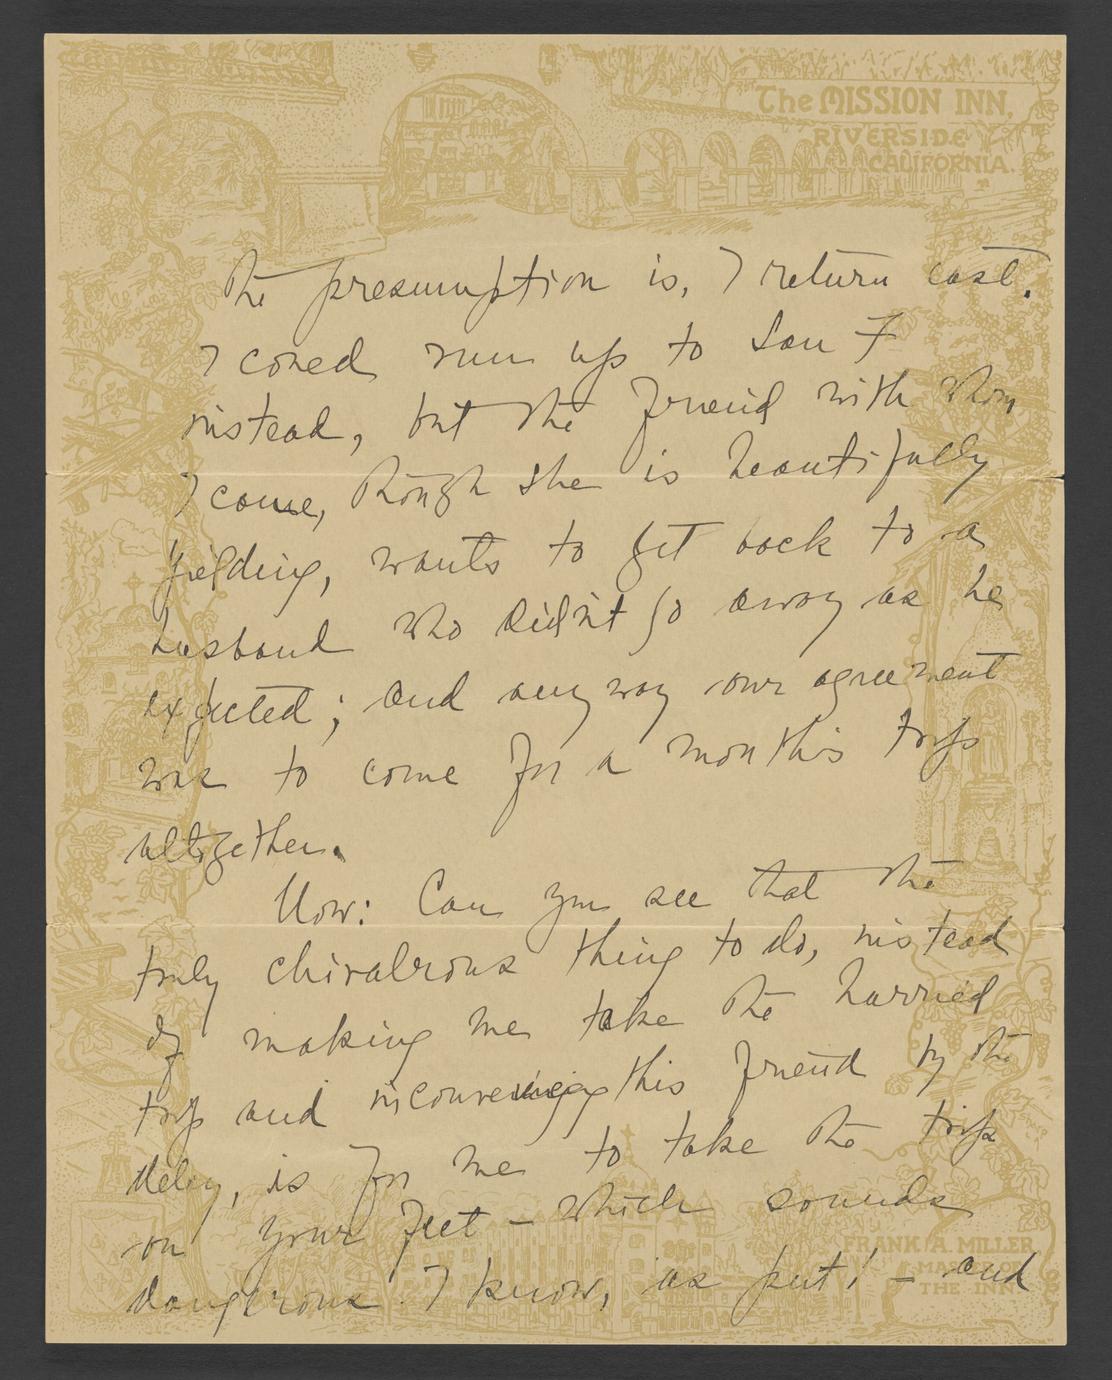 The MISSION INN,
RIVERSIDE
CALIFORNIA.
The presumption is, I return east.
I could run up to San F
instead, but the friend with whom
I came, though she is beautifully
yielding, wants to get back to a
husband who didn't go away as he
expected; and anyway our agreement
was to come for a month's trip
altogether.
Now: Can you see that the
truly chivalrous thing to do, instead
of making me take the hurried
trip and this friend by the
delay, is for me to take the trip
on your feet — which sounds
dangerous I know, as put! — and
FRANK A. MILLER
MASTER OF
THE INN